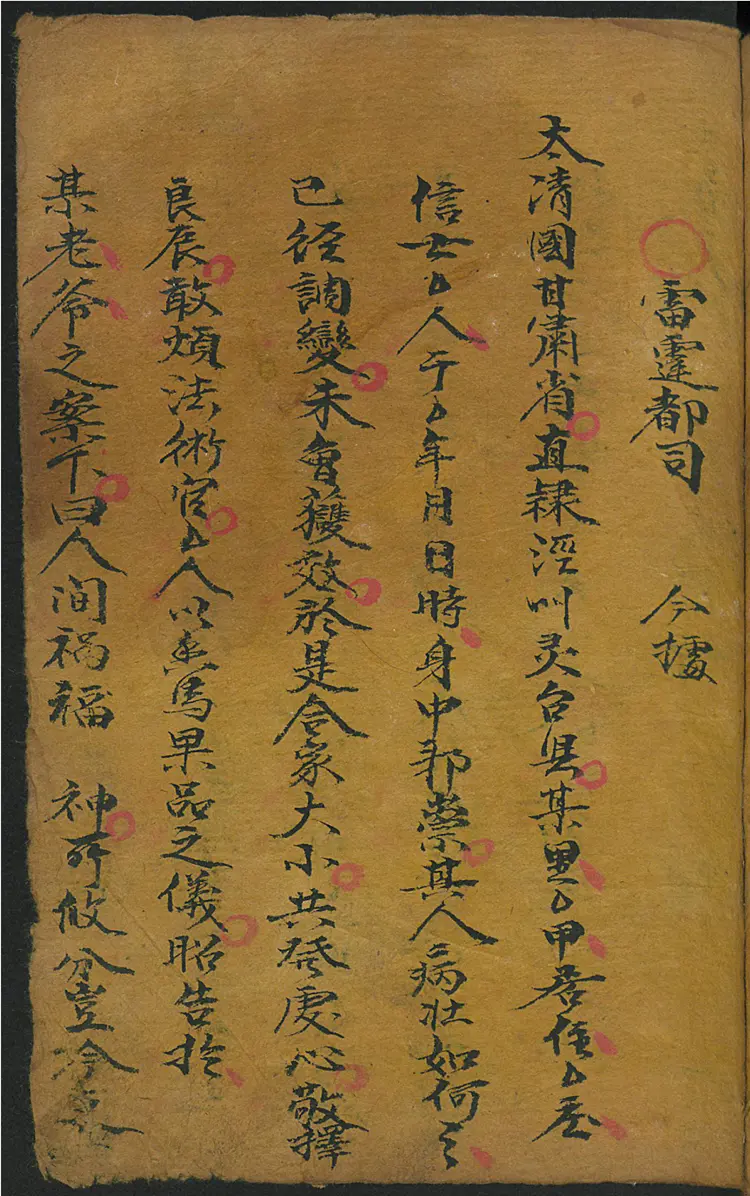 雷霆都司　今據
太清國甘肅省直隸涇州灵台县某里厶甲居住厶民
信士厶人于厶年月日時身中邪祟其人病壮如何之
已径調變未會獲效於是合家大小共發虔心敬擇
良辰敢煩法術官厶人以馬果品之儀昭告於
某老爷之案下曰人间祸福　神所攸分豈冷